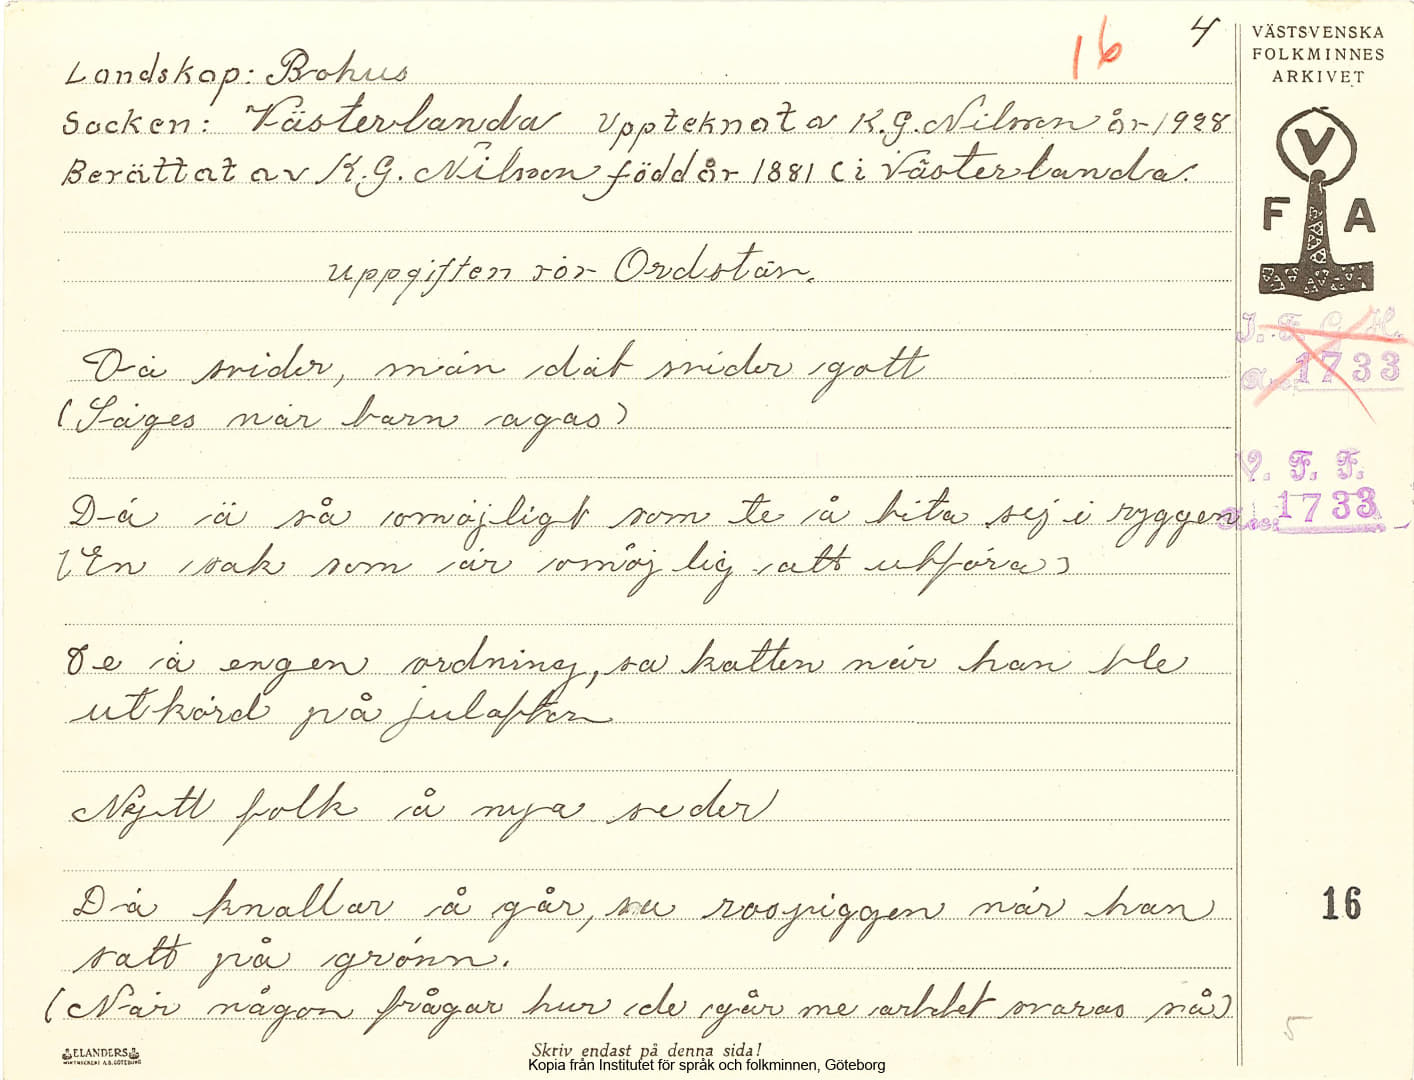 16
4
VÄSTSVENSKA
FOLKMINNES
ARKIVET
Landskap: Bohus
Socken: Västerlanda Upptecknat av K.G. Nilsson år 1928
Berättat av K.G. Nilsson född år 1881 i Västerlanda.
Uppgiften rör Ordstäv.
V
F A
I. F. G. H.
1733
V. F. F.
1733
Dä svider, män dät svider gott
(Säges när barn agas)
Dä ä så omöjligt som te å bita sej i ryggen
(En sak som är omöjlig att utföra)
De ä engen ordning, sa katten när han ble
utkörd på julafton
Nytt folk å nya seder
Dä knallar å går, sa rospiggen när han
satt på grönn.
(När någon frågar hur de går me arbetet svaras så)
16
5
ELANDERS
Skriv endast på denna sida!
Kopia från Institutet för språk och folkminnen, Göteborg